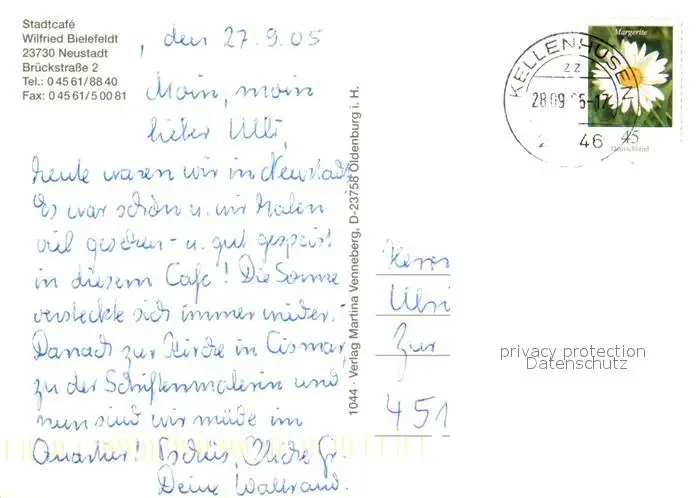 Stadtcafé
Wilfried Bielefeldt
23730 Neustadt
Brückstraße 2
Tel.: 0 45 61/88 40
Fax: 0 45 61/5 00 81
, den 27.9.05
Moin, moin
lieber Ulli,
heute waren wir in Neustadt.
Es war schön u. wir haben
viel gesehen - u. gut gespeist
in diesem Cafe! Die Sonne
versteckte sich immer wieder.
Danach zur Kirche in Cismar,
zu der Schriftenmalerin und
nun sind wir müde im
Quartier! Tschüs,
Deine Waltraud.
1044 · Verlag Martina Venneberg, D-23758 Oldenburg i. H.
Margerite
45
Deutschland
KELLENHUSEN
zz
28.09
46
Herrn
Ulri
Zur
451
privacy protection
Datenschutz